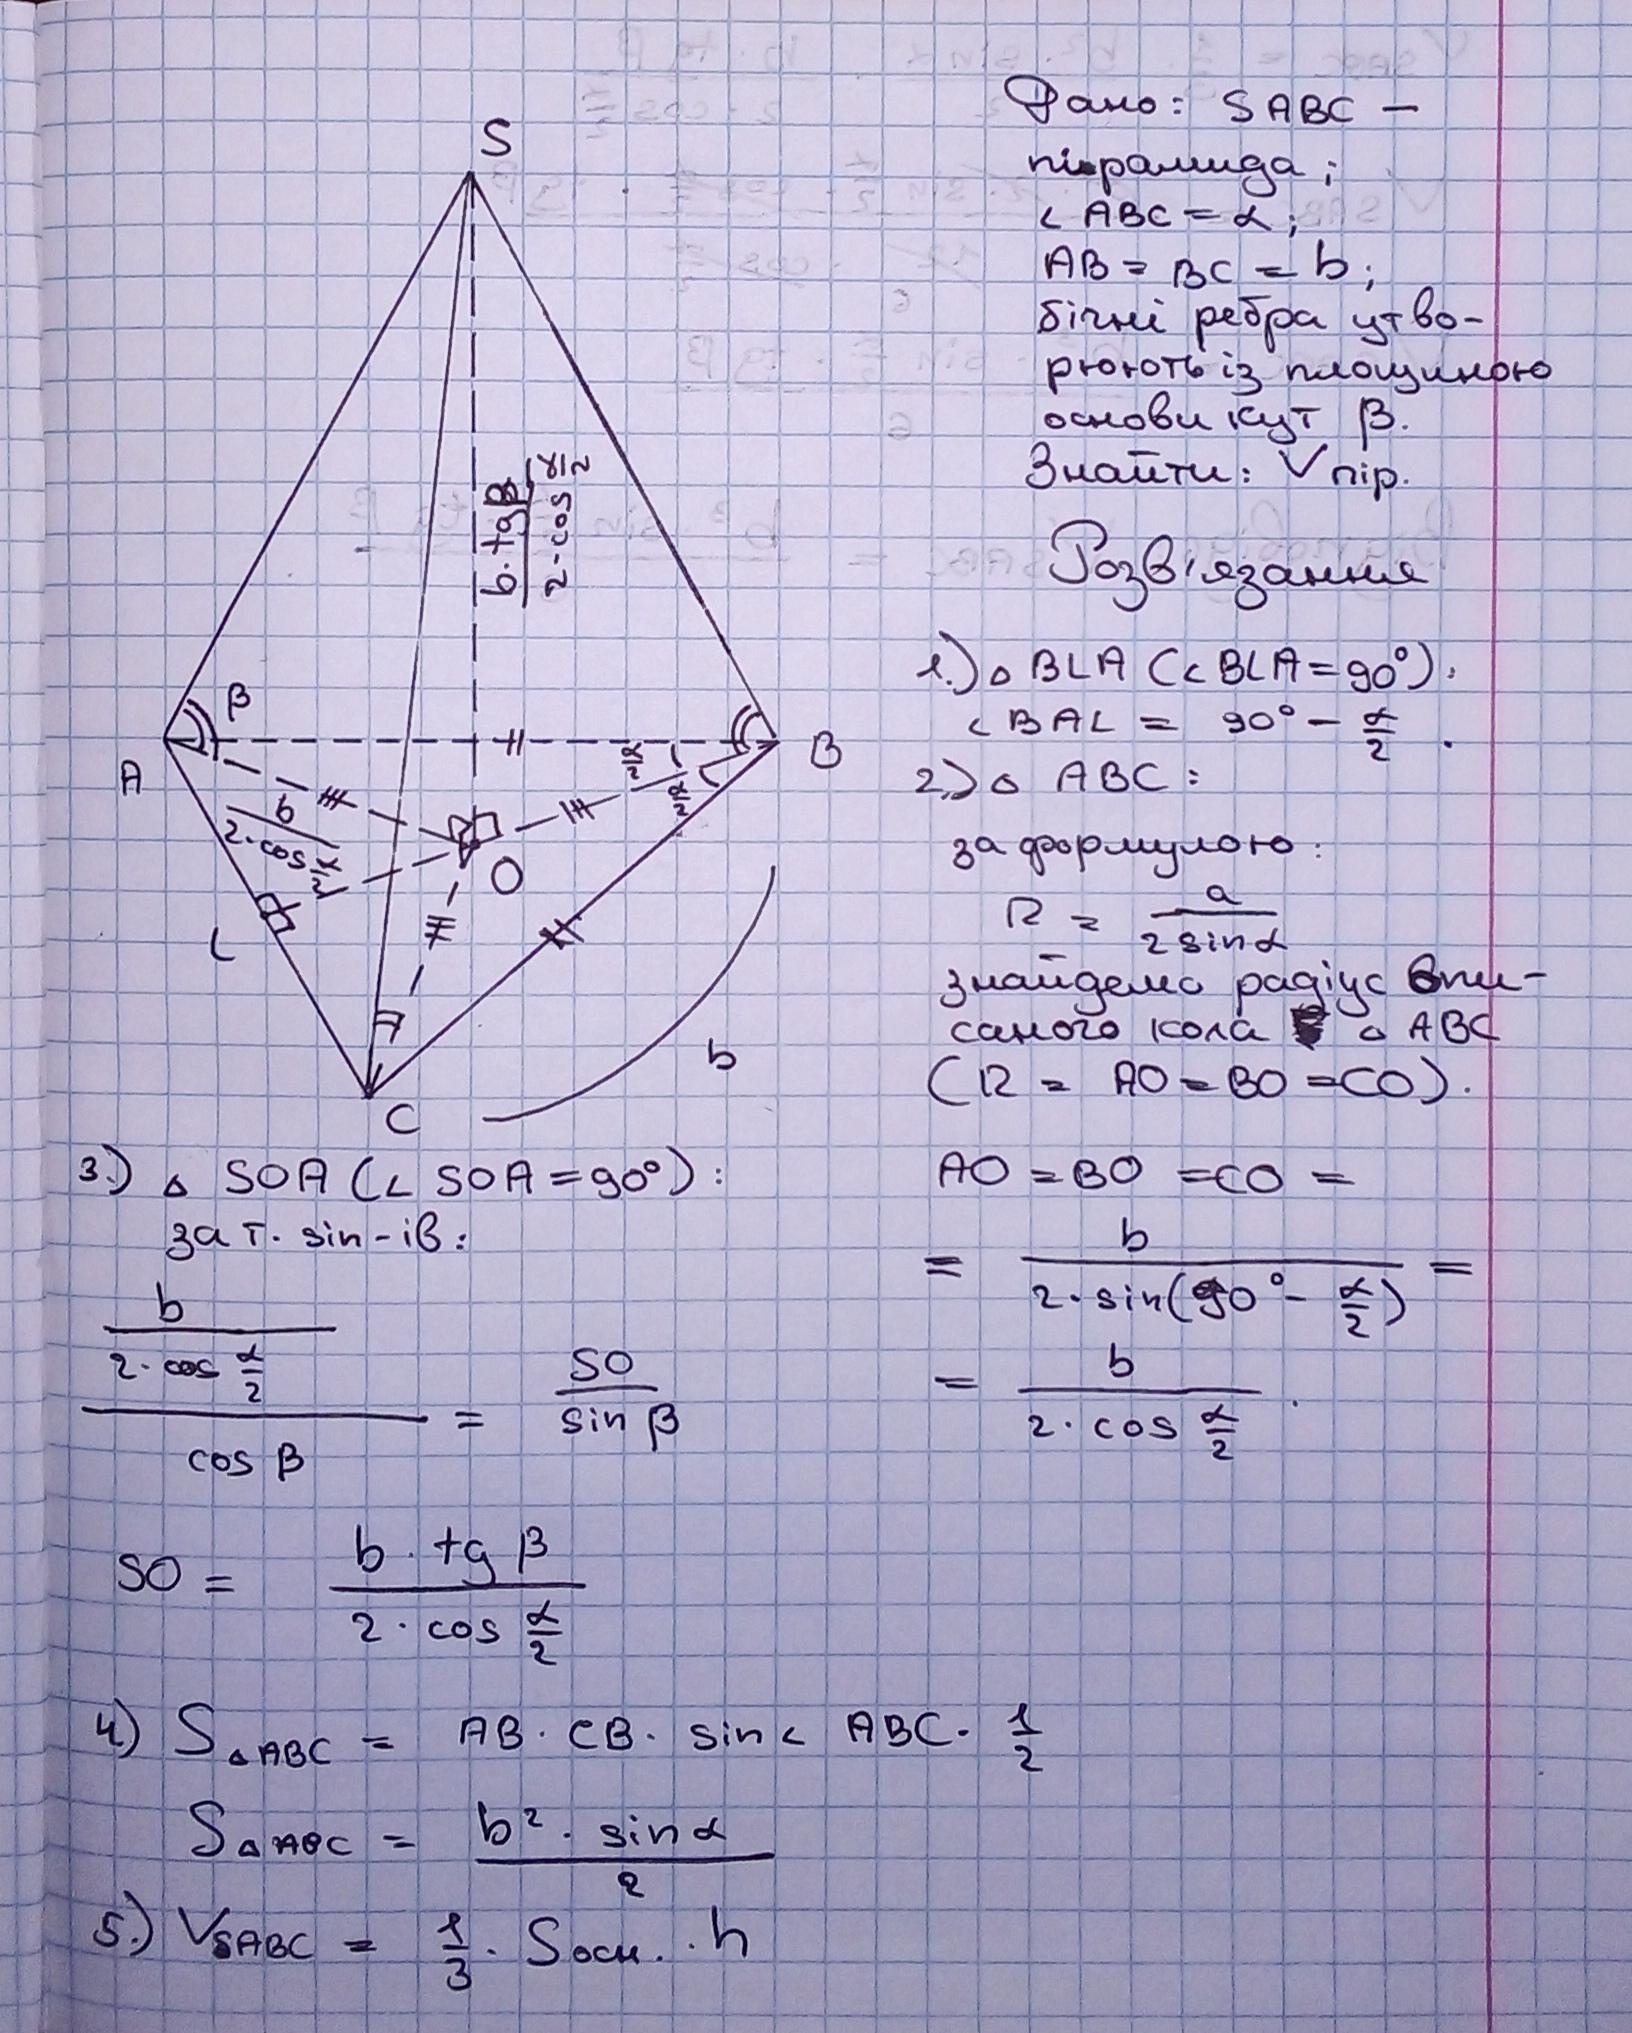 S
b·tgβ
2·cos α/2
β
A
B
α/2
α/2
b
2·cos α/2
O
L
b
C
Дано: SABC –
піраміда;
∠ABC = α;
AB = BC = b;
бічні ребра утво-
рюють із площиною
основи кут β.
Знайти: Vпір.
Розв'язання
1.) △ BLA (∠BLA = 90°):
∠BAL = 90° – α/2.
2.) △ ABC:
за формулою:
R = a/(2sinα)
знайдемо радіус впи-
саного кола △ ABC
(R = AO = BO = CO).
AO = BO = CO =
= b/(2·sin(90° – α/2)) =
= b/(2·cos α/2).
3.) △ SOA (∠ SOA = 90°):
за т. sin-ів:
(b/(2·cos α/2))/cos β = SO/sin β
SO = (b·tg β)/(2·cos α/2)
4) S△ABC = AB·CB·sin∠ ABC·1/2
S△ABC = (b²·sinα)/2
5.) VSABC = 1/3·Sосн.·h